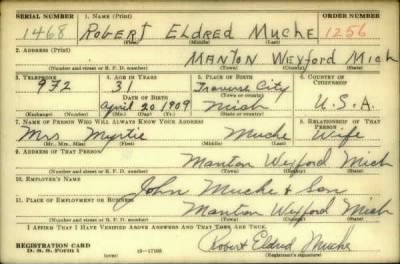 SERIAL NUMBER 1. NAME (Print) ORDER NUMBER
1468 Robert Eldred Muche 1256
(First) (Middle) (Last)
2. ADDRESS (Print)
MANTON Wexford Mich
(Number and street or R. F. D. number) (Town) (County) (State)
3. TELEPHONE 4. AGE IN YEARS 5. PLACE OF BIRTH 6. COUNTRY OF CITIZENSHIP
972 31 Traverse City
DATE OF BIRTH (Town or county)
April 20 1909 Mich U.S.A.
(Exchange) (Number) (Mo.) (Day) (Yr.) (State or country)
7. NAME OF PERSON WHO WILL ALWAYS KNOW YOUR ADDRESS 8. RELATIONSHIP OF THAT PERSON
Mrs Myrtie Muche Wife
(Mr., Mrs., Miss) (First) (Middle) (Last)
9. ADDRESS OF THAT PERSON
Manton Wexford Mich
(Number and street or R. F. D. number) (Town) (County) (State)
10. EMPLOYER'S NAME
John Muche & Son
11. PLACE OF EMPLOYMENT OR BUSINESS
Manton Wexford Mich
(Number and street or R. F. D. number) (Town) (County) (State)
I AFFIRM THAT I HAVE VERIFIED ABOVE ANSWERS AND THAT THEY ARE TRUE.
REGISTRATION CARD
D. S. S. Form 1 (over) Robert Eldred Muche
(Registrant's signature)